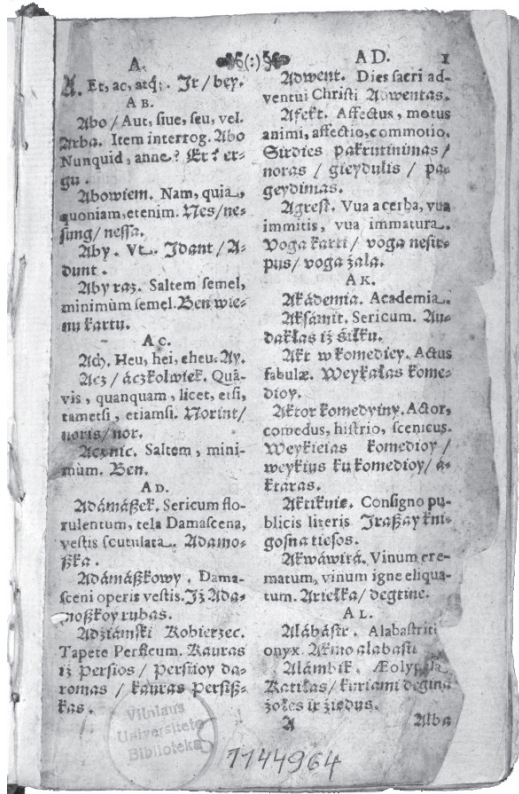 A.
A. Et, ac, atq;. Ir / bey.
AB.
Abo / Aut, siue, seu, vel.
Arba. Item interrog. Abo
Nunquid, anne? Er? er-
gu.
Abowiem. Nam, quia,
quoniam, etenim. Nes / ne-
sung / nessa.
Aby. Vt. Idant / A-
dunt.
Aby raz. Saltem semel,
minimùm semel. Ben wie-
nu kartu.
AC.
Ach. Heu, hei, eheu. Ay.
Acz / áczkolwiek. Quā-
vis, quanquam, licet, etsi,
tametsi, etiamsi. Norint /
noris / nor.
Acznic. Saltem, mini-
mùm. Ben.
AD.
Adámászek. Sericum flo-
rulentum, tela Damascena,
vestis scutulata. Adamo-
ßka.
Adámáßkowy. Dama-
sceni operis vestis. Iż Ada-
moßkoy rubas.
Adziámski Kobierzec.
Tapete Persicum. Kauras
iż Persios / Persiioy da-
romas / kauras Persiß-
kas.
AD. 1
Adwent. Dies sacri ad-
ventui Christi Adwentas.
Afekt. Affectus, motus
animi, affectio, commotio.
Sirdies pakrutinimas /
noras / gieydulis / pa-
geydimas.
Agrest. Vua acerba, vua
immitis, vua immatura.
Voga karti / voga nesir-
pus / voga żala.
AK.
Akádemia. Academia.
Aksámit. Sericum. Au-
daklas iż śilku.
Akt w komediey. Actus
fabulæ. Weykałas kome-
dioy.
Aktor komedyiny. Actor,
comedus, histrio, scenicus.
Weykieias komedioy /
weykius ku komedioy / a-
ktaras.
Aktikuie. Consigno pu-
blicis literis Iraßay kni-
gosna tiesos.
Akwáwitá. Vinum cre-
matum, vinum igne eliqua-
tum. Arielka / degtine.
AL.
Alábástr. Alabastriti
onyx. Akmo alabastr
Alámbik. Æolypila
Katilas / kuriami degina
żoles ir żiedus.
A Alba
Vilniaus
Universiteto
Biblioteka
1144964